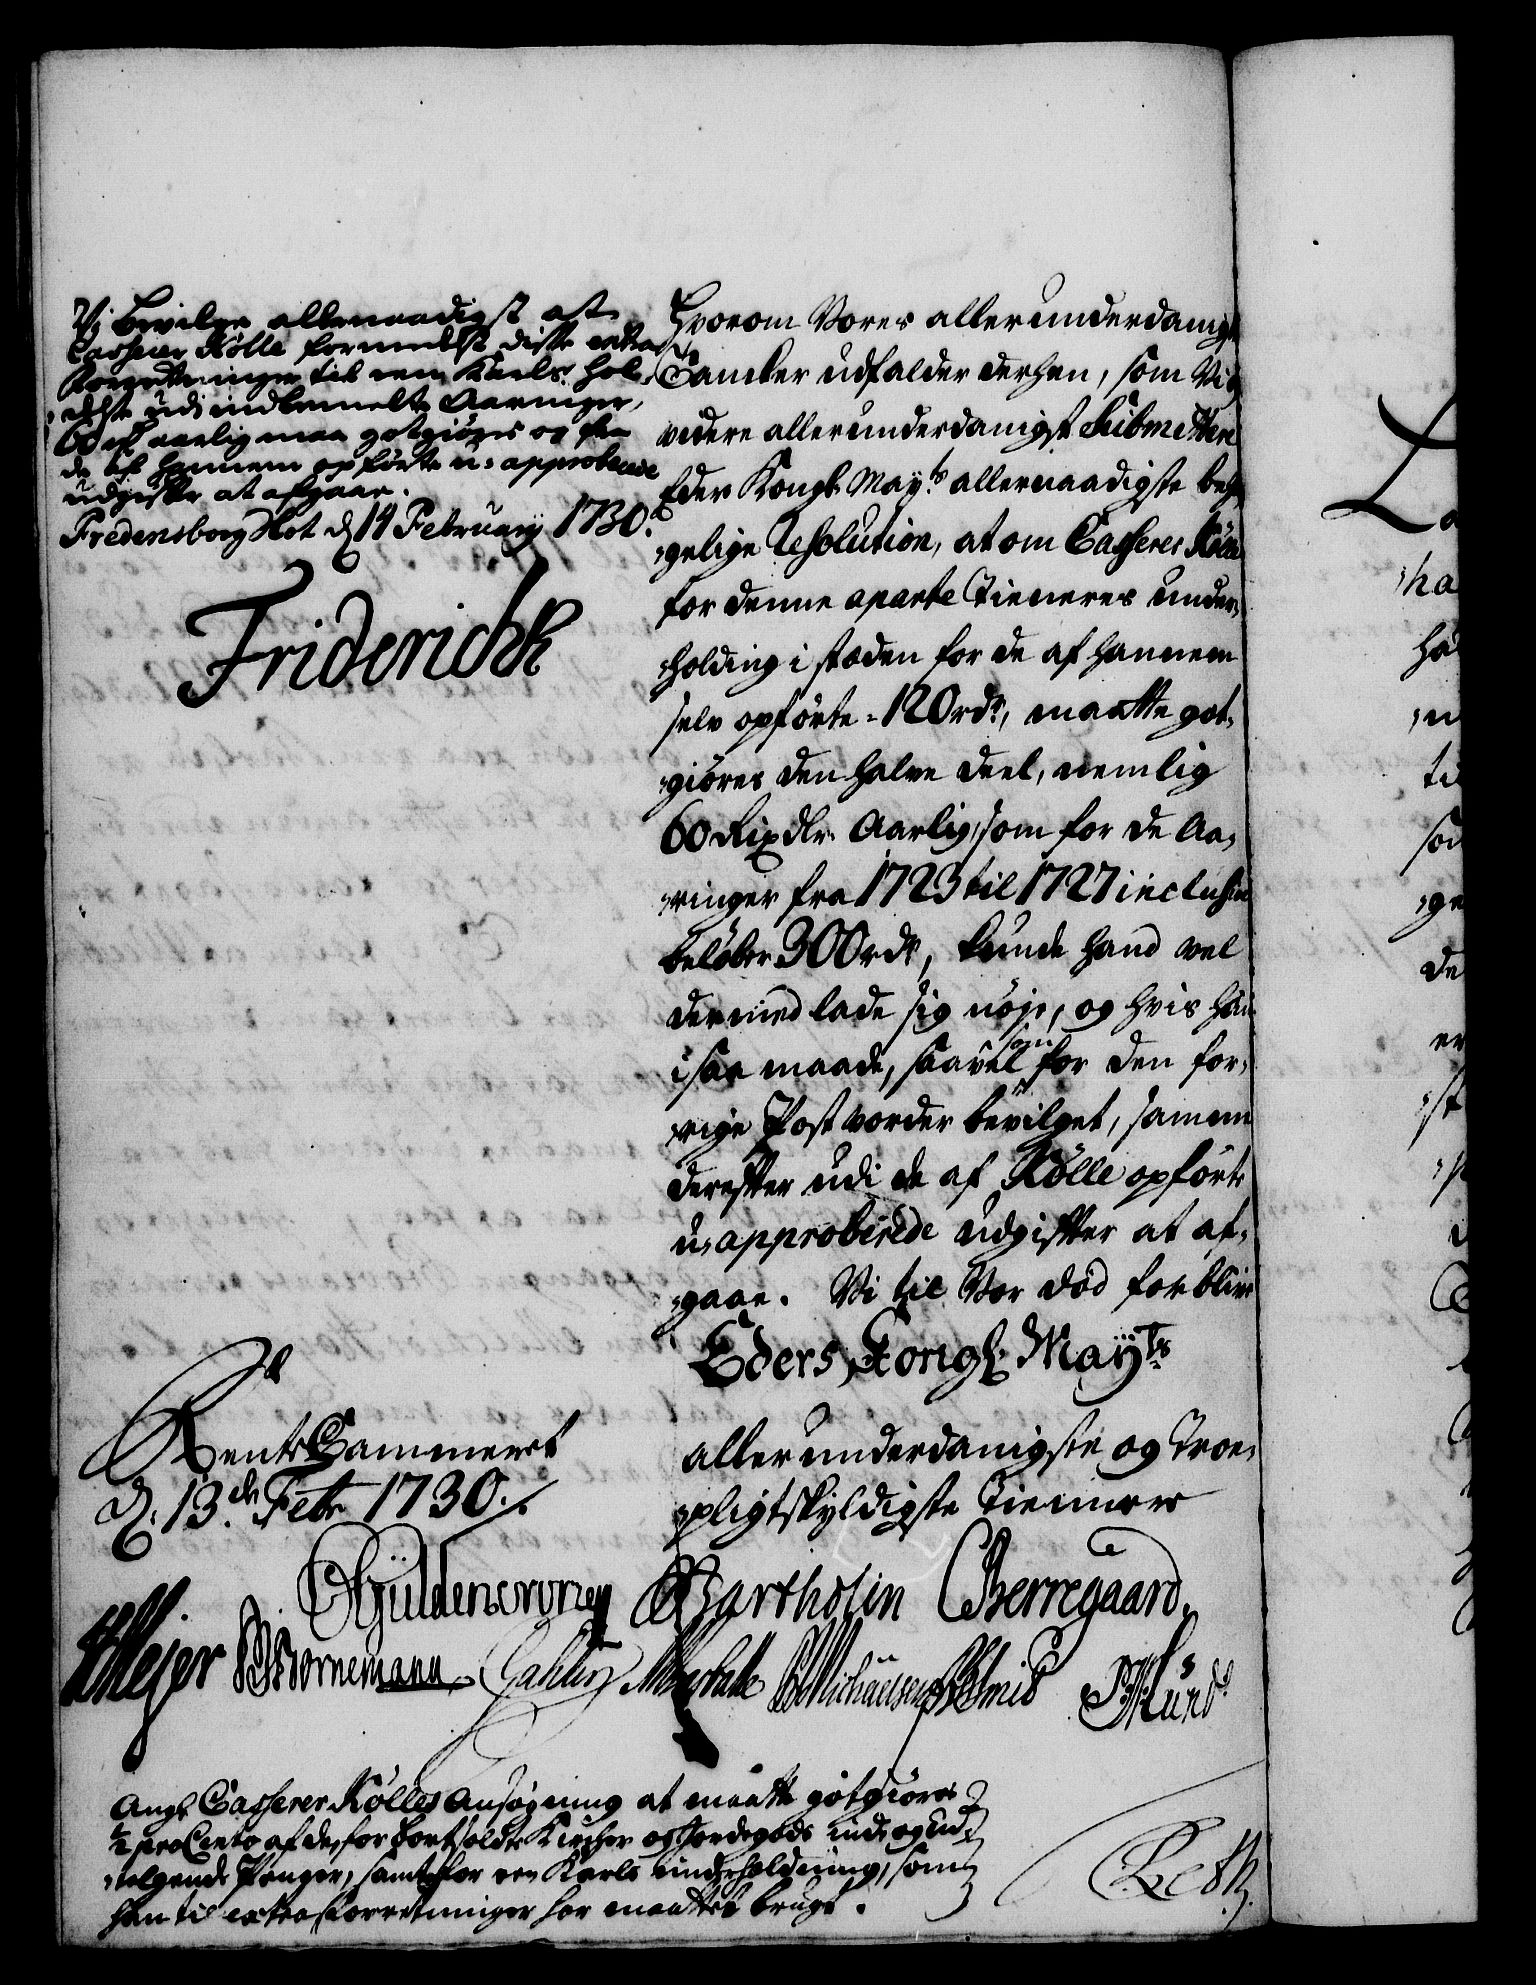 Vi bevilge allernaadigst at
Casserer Kølle formedelst disse extra
Forretninger til een Karls hol-
delse udi indbemelte Aaringer,
60 rd aarlig maa gotgiøres og fra
de af hannem opførte u-approberede
udgifter at afgaae.
Fredensborg Slot d 14 February 1730.
Friderich R
Hvorom Vores allerunderdanigste
Tancker udfalder derhen, som Vi
videre allerunderdanigst Submittere
Eders Kongl. Mayts allernaadigste beha-
gelige Resolution, at om Casserer Kølle
for denne aparte Tieneres under-
holding i stæden for de af hannem
selv opførte 120 rdr, maatte got-
giøres den halve deel, nemlig
60 Rixdlr. Aarlig, som for de Aa-
ringer fra 1723 til 1727 inclusive
beløber 300 rdr, kunde hand vel
dermed lade sig nøje, og hvis han
i saa maade, saavel som for den for-
rige Post vorder bevilget, samme
derefter udi de af Kølle opførte
u-approberede udgifter at af-
gaae. Vi til Vor død forblive
Eders Kongl. Mayts
allerunderdanigste og Troe-
pligtskyldigste Tiennere
Rente Cammeret
d. 13de Febr 1730.
Güldencrone Bartholin CBerregaard
Mejer Bornemann Michaelsen
Angl. Casserer Kølles Ansøgning at maatte gotgiøres
1/2 pro Cento af de for bortsolde Kircher og Jordegods ind og ud-
telgende Penger, samt for een Karls underholdning, som
han til extra forretninger har maattet brugt.